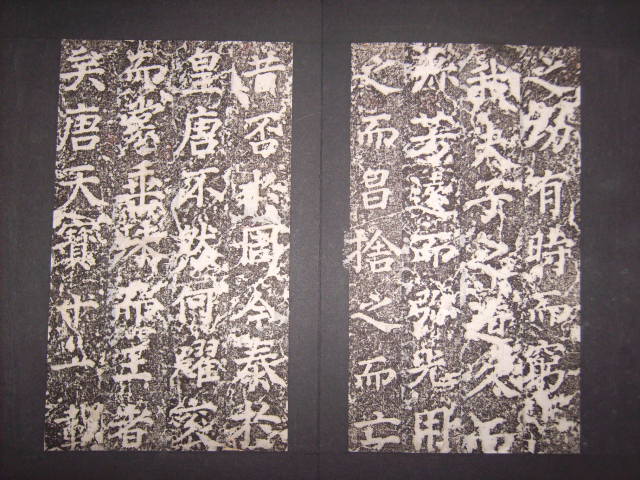 之明有時而窮
我夫子之道久而
弥芳遠而弥光用
之而昌捨之而亡
昔否於周今泰於
皇唐不然何耀衮
而裳垂珠而王者
矣唐天寶十一載